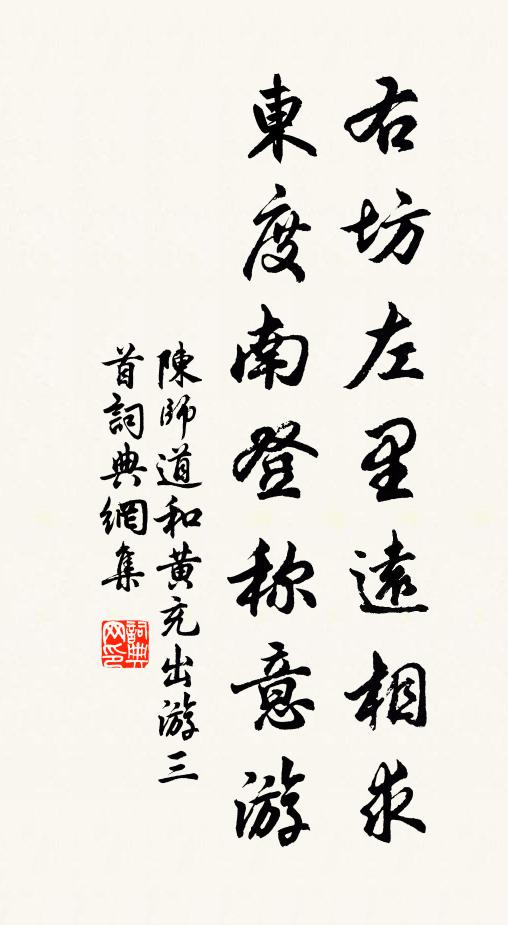 右坊左里遠相求
東度南登称意游
陳師道和黄充出游三
首詞典網集
詞典网印